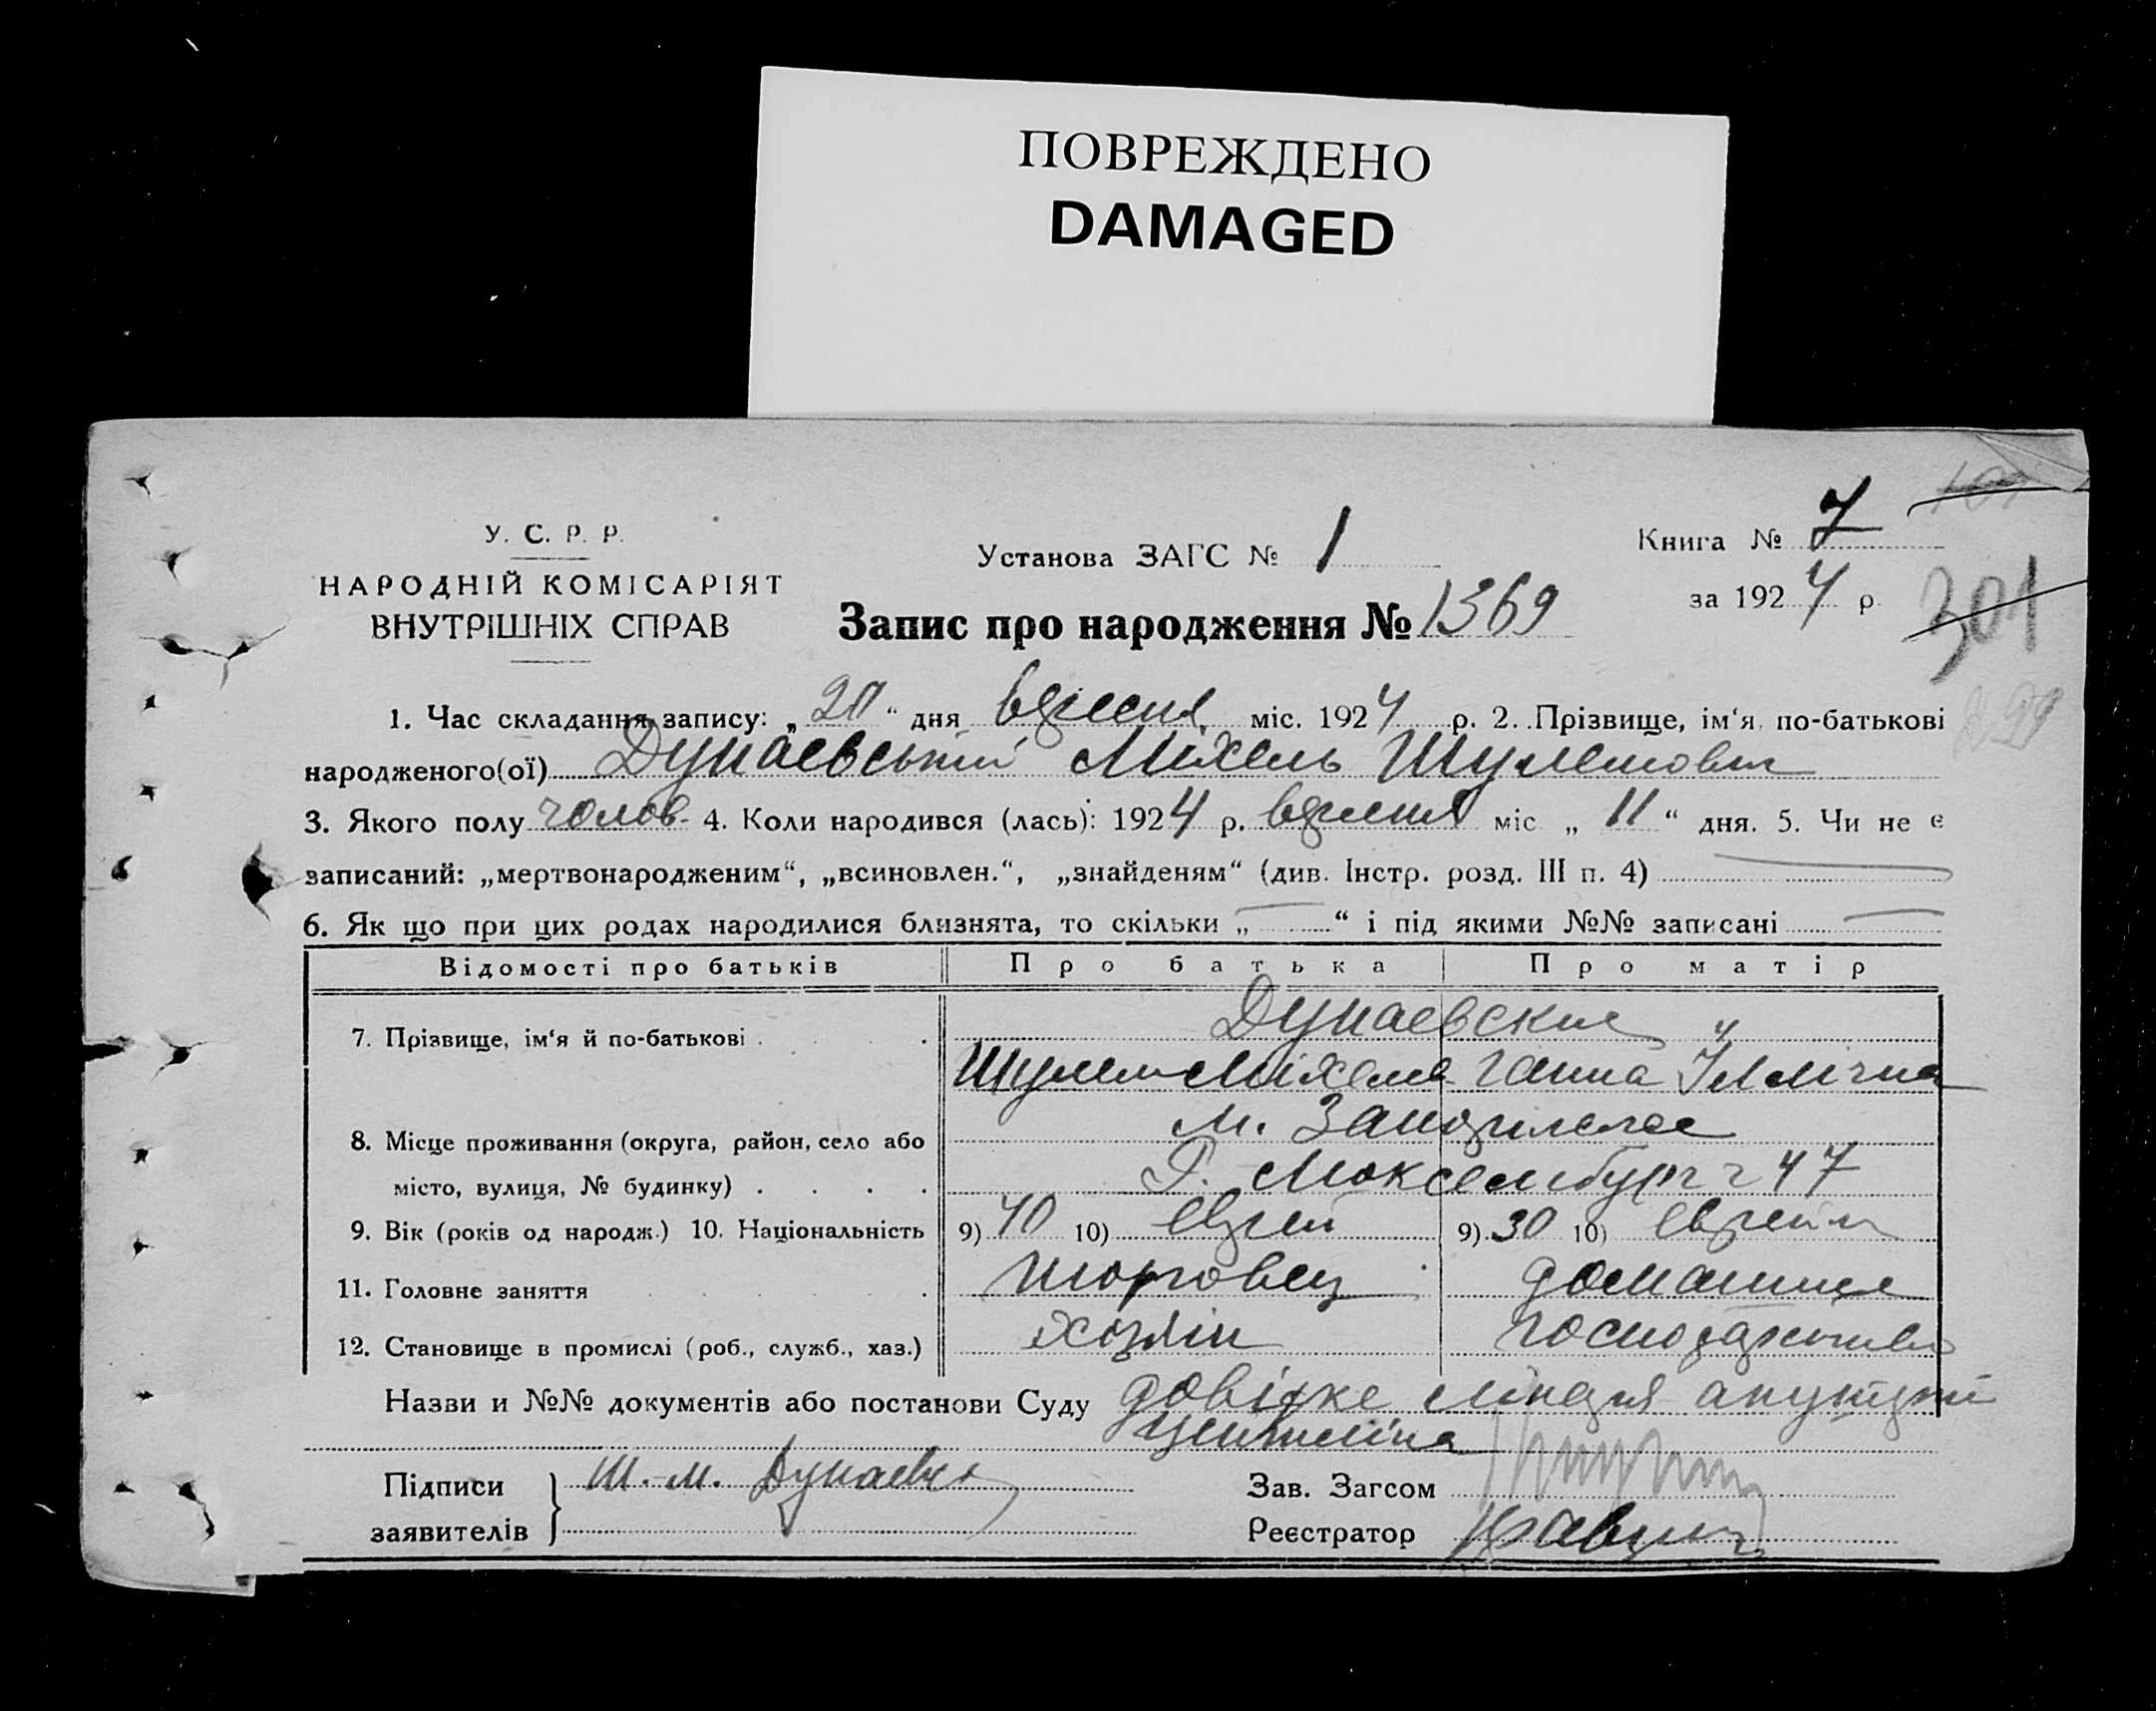 ПОВРЕЖДЕНО
DAMAGED
У. С. Р. Р.
НАРОДНІЙ КОМІСАРІЯТ
ВНУТРІШНІХ СПРАВ
Установа ЗАГС № 1
Запис про народження № 1369
Книга № 7
за 1924 р.
301
1. Час складання запису: „20“ дня вересня міс. 1924 р. 2. Прізвище, ім‘я по-батькові
народженого(ої) Дунаевський Міхель Шулемович
3. Якого полу чолов. 4. Коли народився (лась): 1924 р. вересня міс „11“ дня. 5. Чи не є
записаний: „мертвонародженим“, „всиновлен.“, „знайденям“ (див. Інстр. розд. III п. 4)
6. Як що при цих родах народилися близнята, то скільки „ “ і під якими №№ записані
Відомості про батьків Про батька Про матір
Дунаевские
7. Прізвище, ім‘я й по-батькові Шулем Міхелев Ганна
м.
8. Місце проживання (округа, район, село або
місто, вулиця, № будинку) 47
9. Вік (років од народж.) 10. Національність 9) 40 10) Еврей 9) 30 10) Еврейк
11. Головне заняття торговец домашнє
12. Становище в промислі (роб., служб., хаз.) хозяін господарство
Назви и №№ документів або постанови Суду довідке
Підписи Ш. М. Дунаевск Зав. Загсом
заявителів Реєстратор